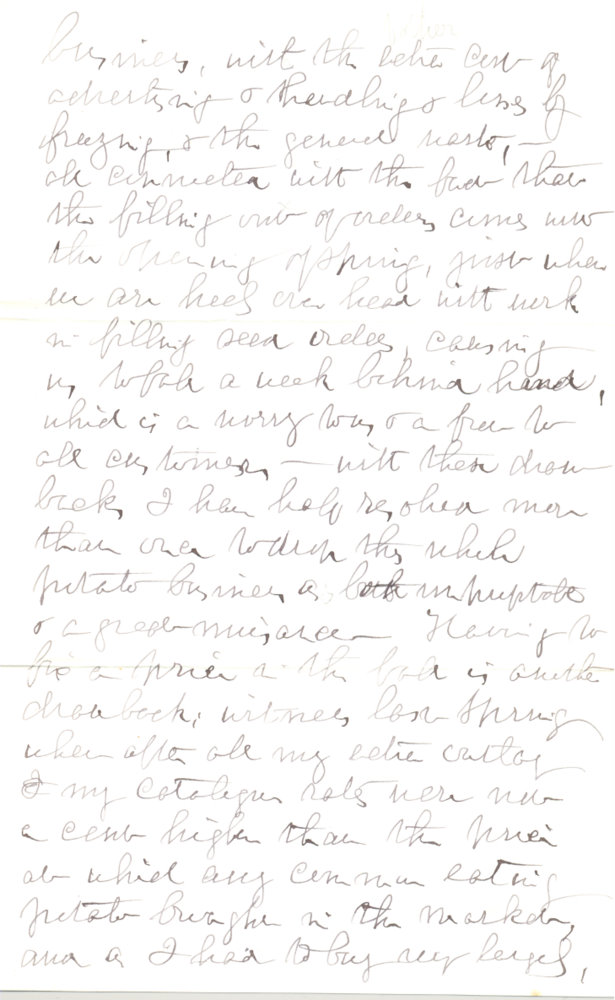 business, with the extra cost of
advertising & handling & losses by
freezing, & the general waste, —
all connected with the fact that
the filling out of orders comes with
the opening of spring, just when
we are heels over head with work
in filling seed orders, causing
us to fall a week behind hand,
which is a worry to us & a to
all customers, — with these draw
backs, I have half resolved more
than once to drop this whole
potato business as both unprofitable
& a great nuisance. Having to
fix a price in the fall is another
drawback; witness last Spring
when after all my extra outlay
I my catalogue rates were not
a cent higher than the price
at which any common eating
potato brought in the market,
and as I had to buy very largely,